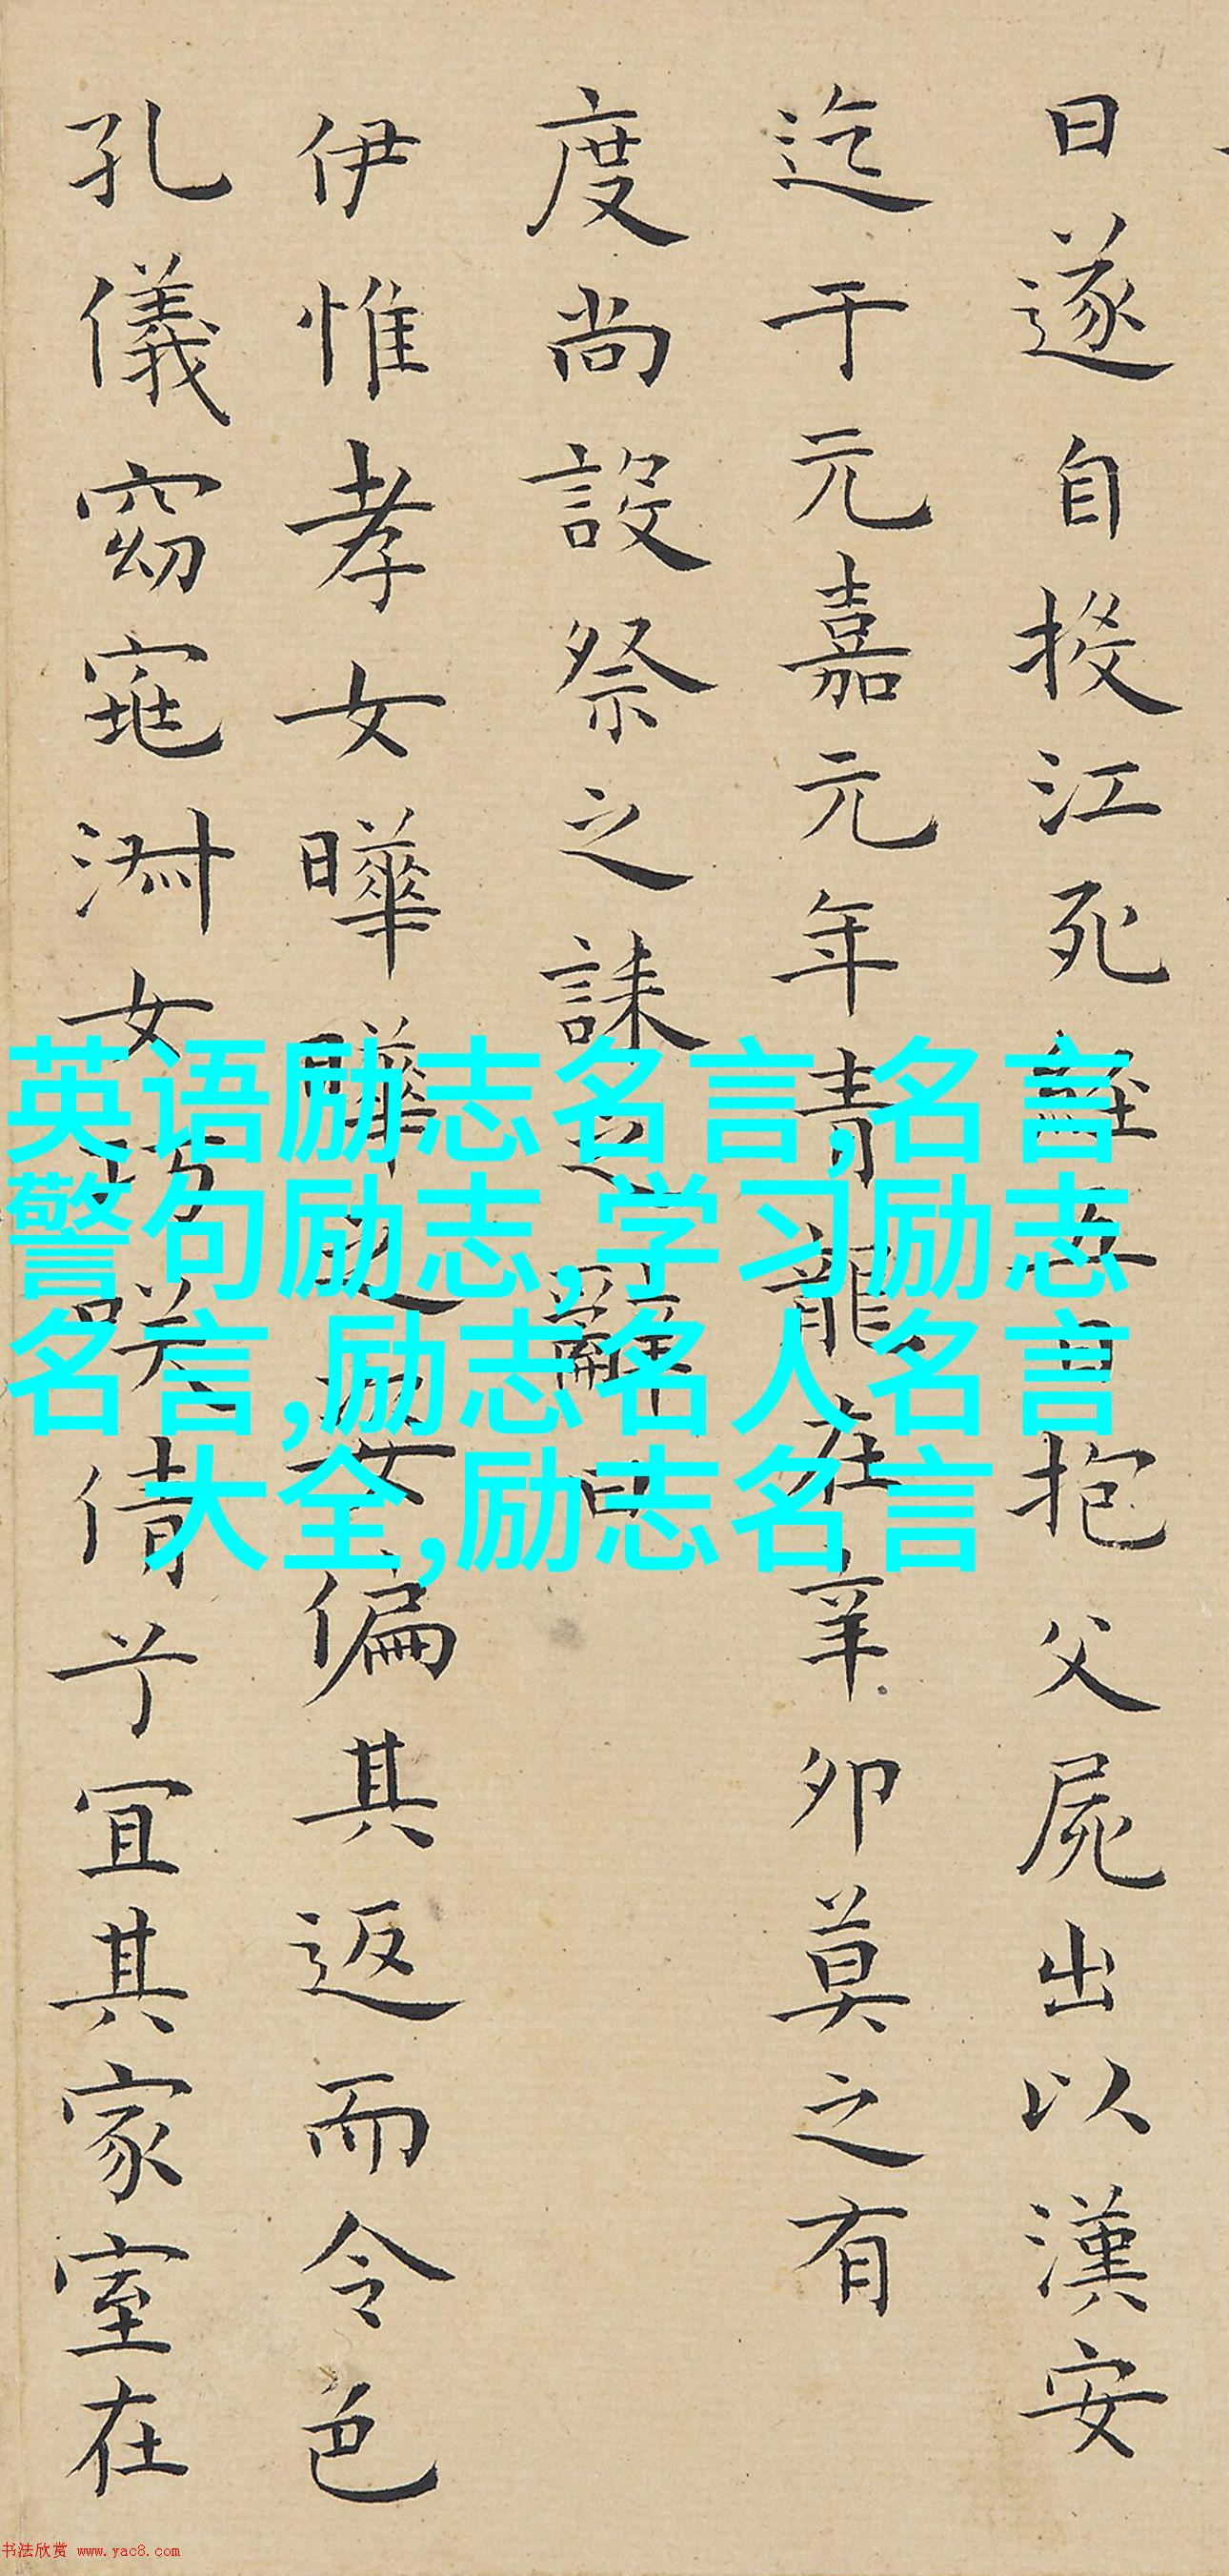 日遂自投江死經五日抱父屍出以漢安
迄于元嘉元年青龍在辛卯莫之有
度尚設祭之誄之辭曰
伊惟孝女曄曄之女偏其返而令色
孔儀窈窕淑女巧咲倩兮宜其家室在
英语励志名言,名言
警句励志,学习励志
名言,励志名人名言
大全,励志名言
书法欣赏 www.yac8.com